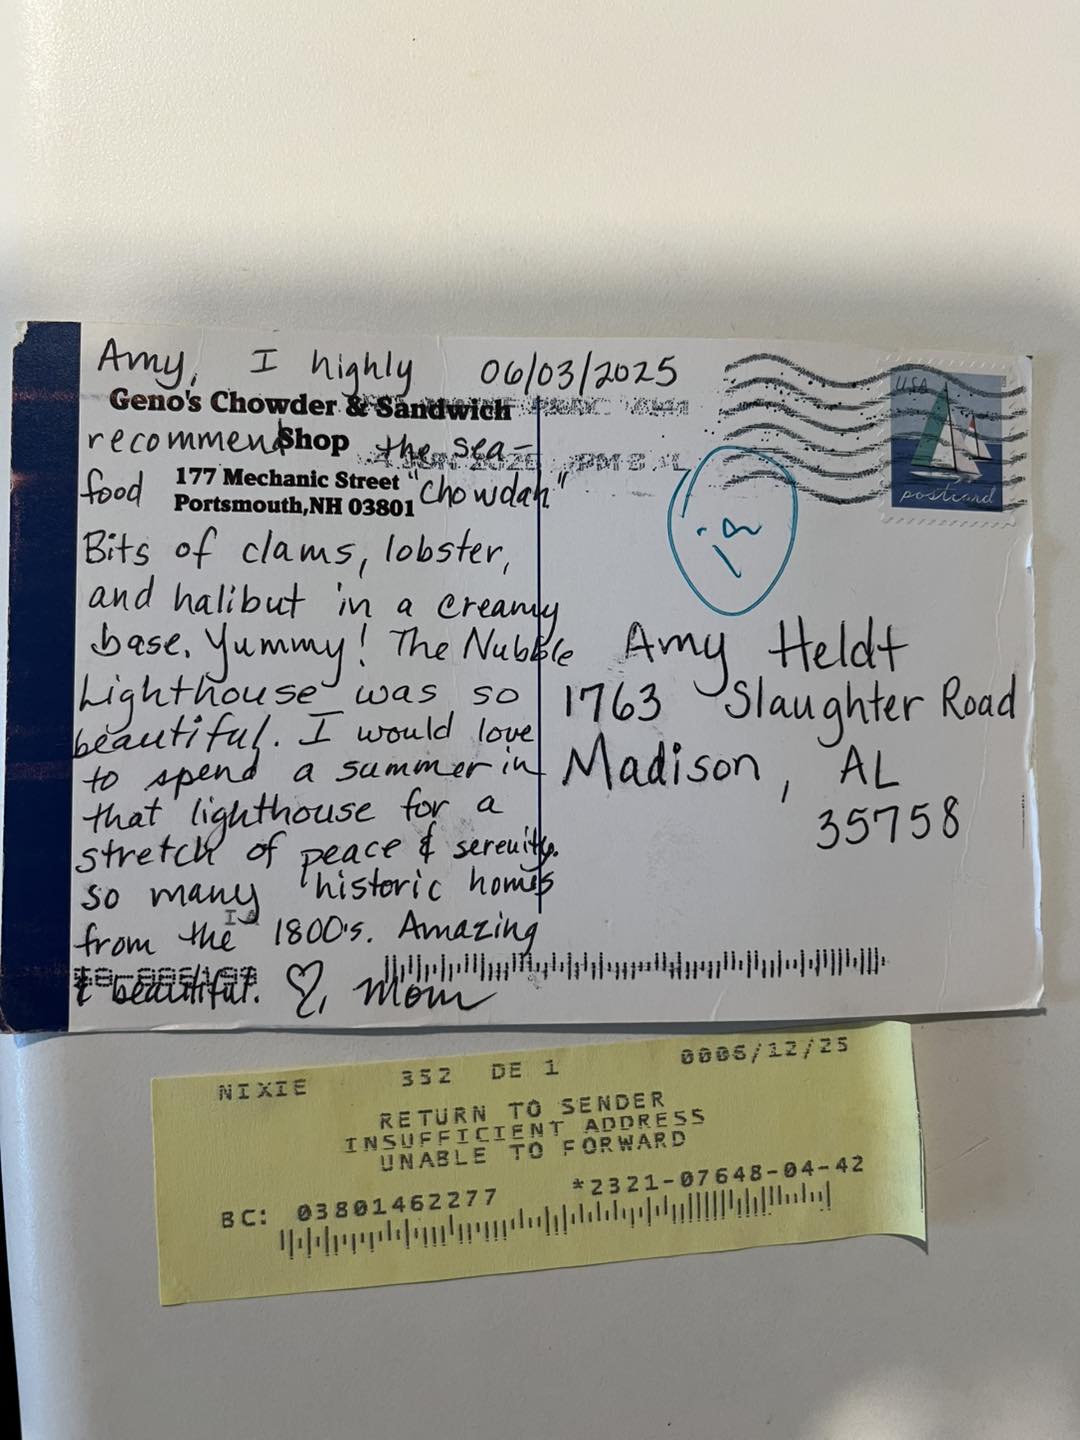 Amy, I highly 06/03/2025
Geno's Chowder & Sandwich
recommend Shop the sea-
food 177 Mechanic Street "Chowdah"
Portsmouth,NH 03801
Bits of clams, lobster,
and halibut in a creamy
base. Yummy! The Nubble
Lighthouse was so
beautiful. I would love
to spend a summer in
that lighthouse for a
stretch of peace & serenity.
so many historic homes
from the 1800's. Amazing
& beautiful. ♡, Mom
USA
postcard
Amy Heldt
1763 Slaughter Road
Madison, AL
35758
NIXIE 352 DE 1 0006/12/25
RETURN TO SENDER
INSUFFICIENT ADDRESS
UNABLE TO FORWARD
BC: 03801462277 *2321-07648-04-42